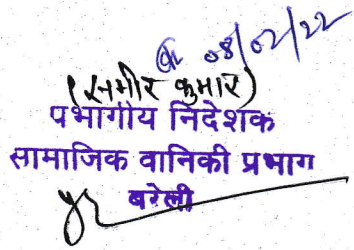 08/02/22
(समीर कुमार)
पभागीय निदेशक
सामाजिक वानिकी प्रभाग
बरेली